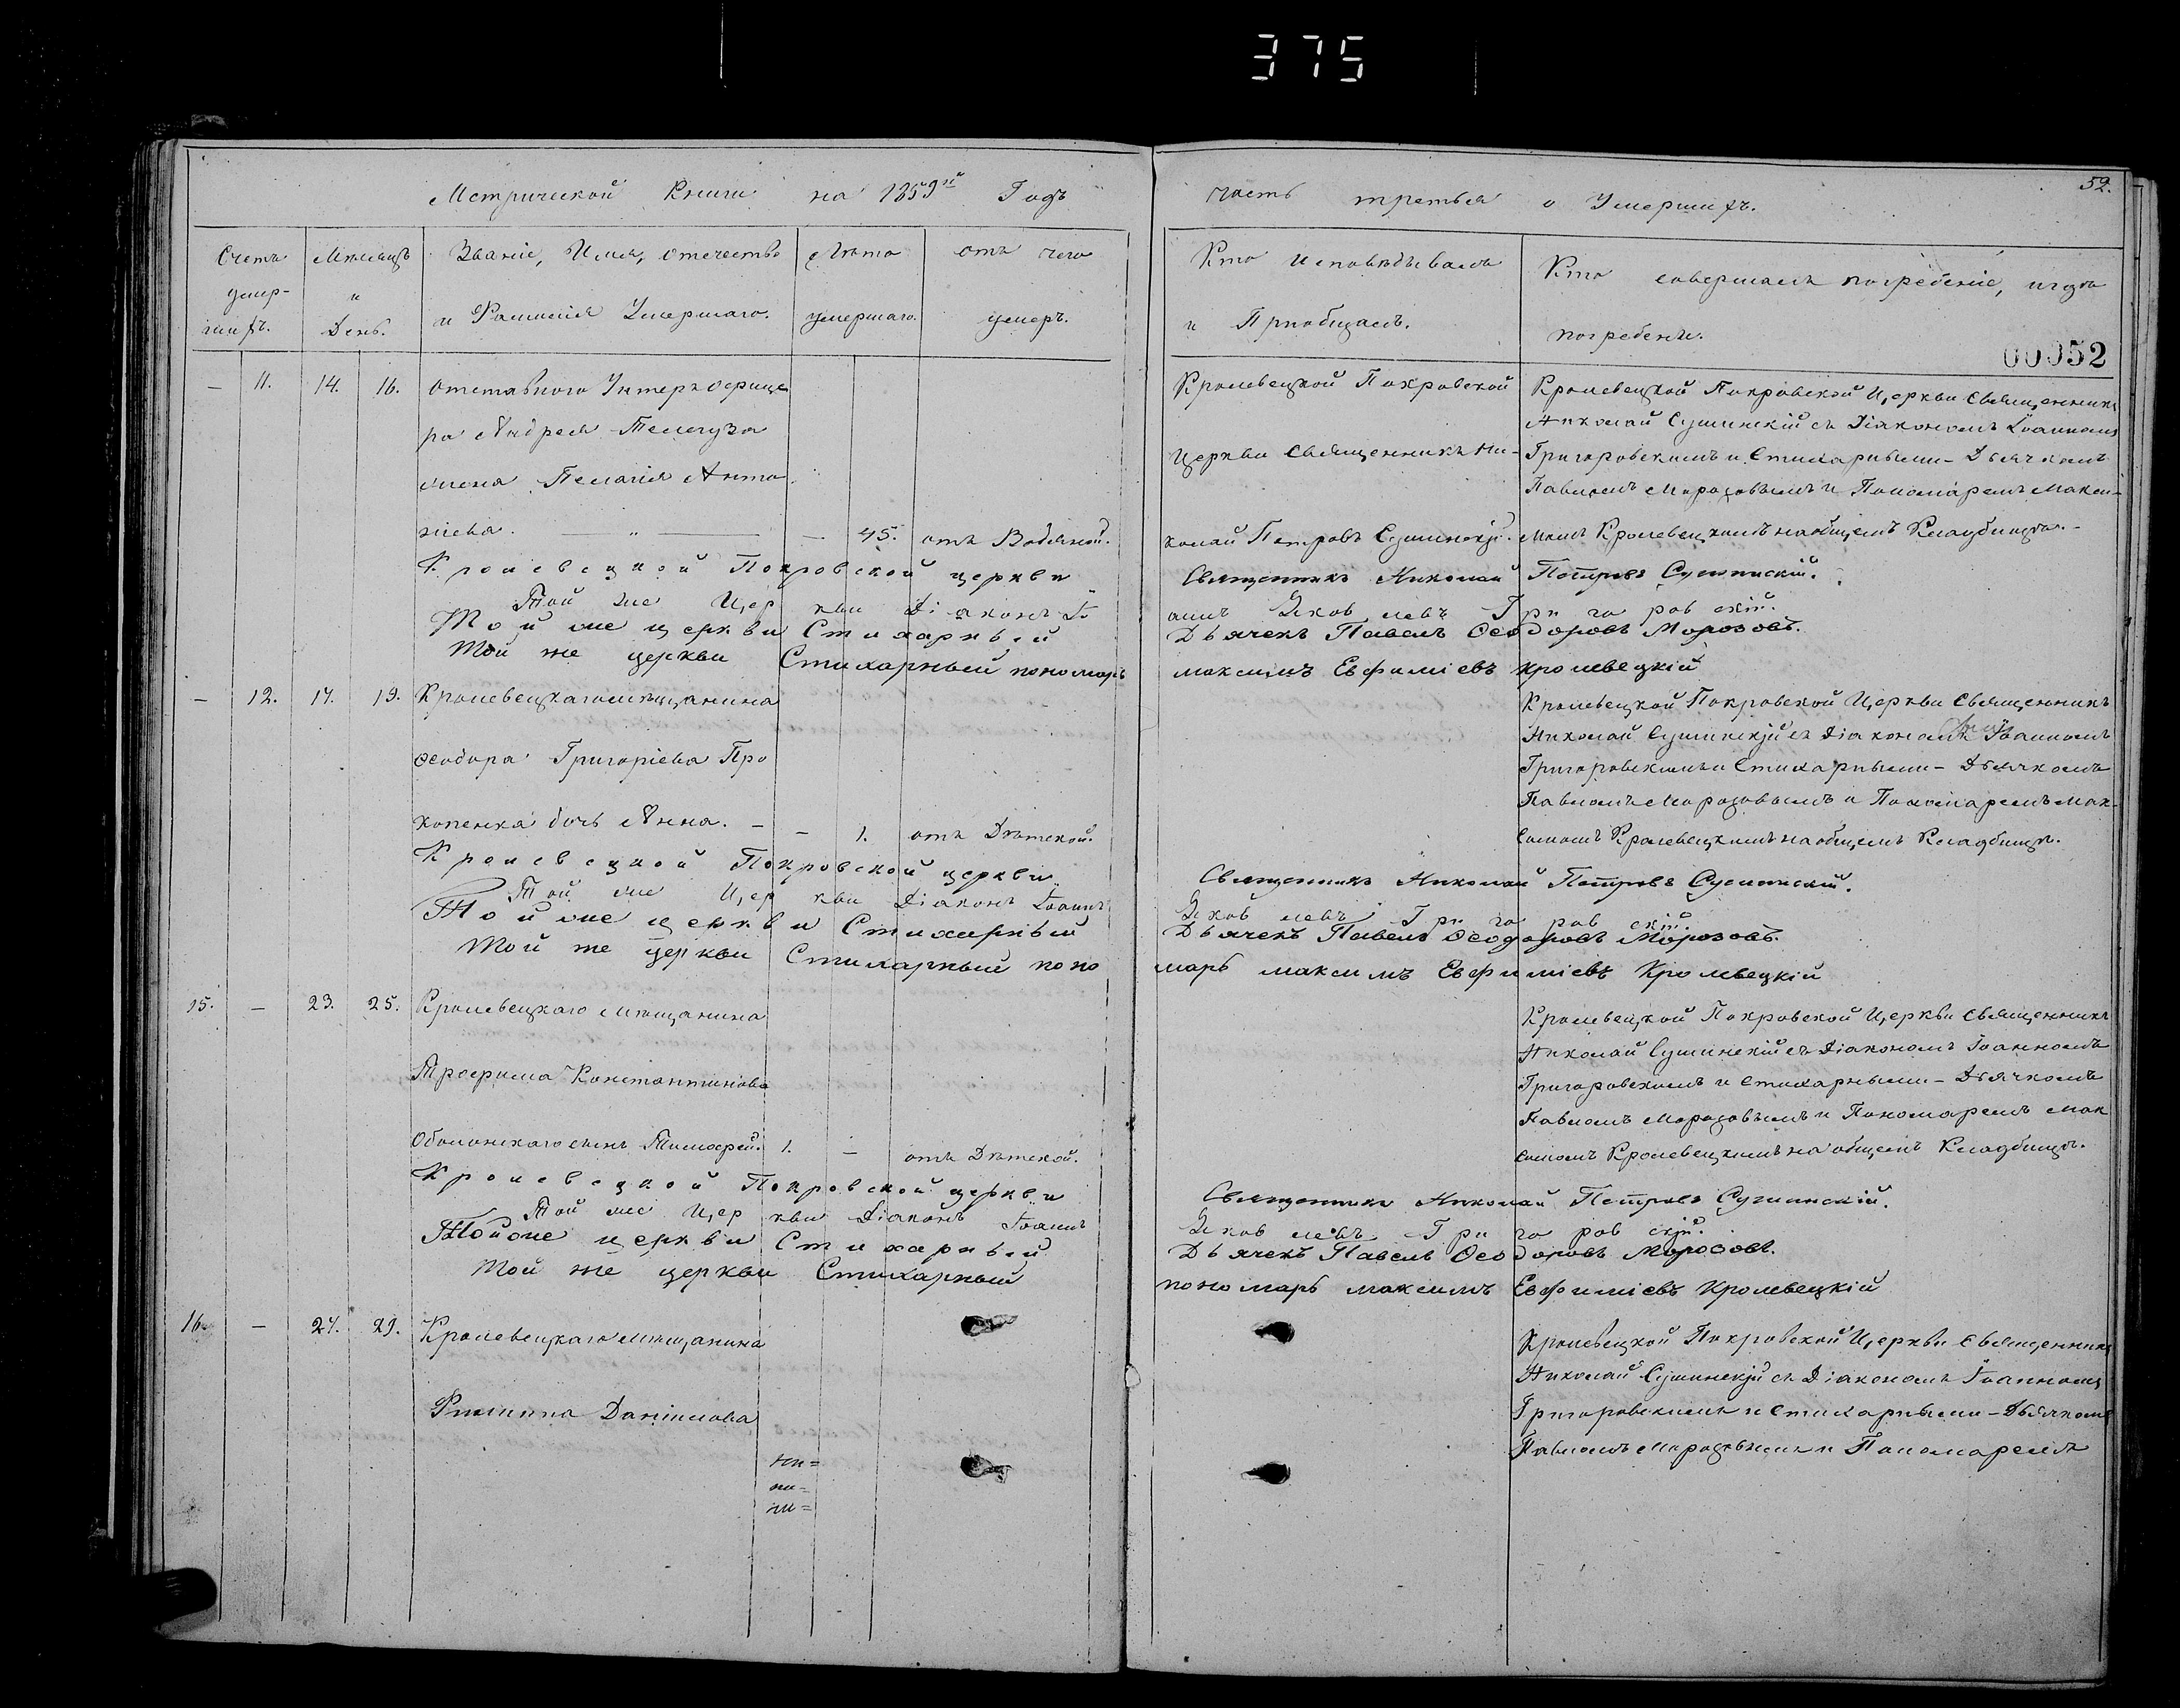 375
Метрической Книги на 1859й Годъ
Часть третья о Умершихъ.
52.
Счетъ умер-шихъ.
Мѣсяцъ и День.
Званіе, Имя, Отечество и Фамилія Умершаго.
Лѣта умершаго.
отъ чего умеръ.
Кто Исповѣдывалъ и Пріобщалъ.
Кто совершалъ погребеніе, и гдѣ погребены.
00052
— 11. 14. 16. Отставного Унтеръ Офице
ра Андрея Телегуза
жена Пелагія Анто
ніева. — 45. отъ Водяной.
Кролевецкой Покровской
Церкви Священникъ Ни-
колай Петровъ Сушинскій.
Кролевецкой Покровской Церкви Священникъ
Николай Сушинскій съ Діакономъ Іоанномъ
Григоровскимъ и Стихарными - Дьячкомъ
Павломъ Морозовымъ и Пономаремъ Макси-
момъ Кролевецкимъ на общемъ Кладбищѣ.
Кролевецкой Покровской церкви Священникъ Николай Петровъ Сушинскій.
Той же Церкви Діаконъ Іоаннъ Яковлевъ Григоровскій.
Той же церкви Стихарный Дьячекъ Павелъ Ѳеодоровъ Морозовъ.
Той же церкви Стихарный пономарь максимъ Евфиміевъ Кролевецкій
— 12. 17. 19. Кролевецкаго мѣщанина
Ѳеодора Григоріева Про
копенка дочь Анна. — — 1. отъ Дѣтской.
Кролевецкой Покровской Церкви Священникъ
Николай Сушинскій съ Діакономъ Іоанномъ
Григоровскимъ и Стихарными - Дьячкомъ
Павломъ Морозовымъ и Пономаремъ Мак-
симомъ Кролевецкимъ на общемъ Кладбищѣ.
Кролевецкой Покровской церкви Священникъ Николай Петровъ Сушинскій.
Той же Церкви Діаконъ Іоаннъ Яковлевъ Григоровскій.
Той же церкви Стихарный Дьячекъ Павелъ Ѳеодоровъ Морозовъ.
Той же церкви Стихарный пономарь максимъ Евфиміевъ Кролевецкій
15. — 23. 25. Кролевецкаго Мѣщанина
Трофима Константинова
Оболонскаго сынъ Тимофей. 1. — отъ Дѣтской.
Кролевецкой Покровской Церкви Священникъ
Николай Сушинскій съ Діакономъ Іоанномъ
Григоровскимъ и Стихарными - Дьячкомъ
Павломъ Морозовымъ и Пономаремъ Мак
симомъ Кролевецкимъ на общемъ Кладбищѣ.
Кролевецкой Покровской церкви Священникъ Николай Петровъ Сушинскій.
Той же Церкви Діаконъ Іоаннъ Яковлевъ Григоровскій.
Той же церкви Стихарный Дьячекъ Павелъ Ѳеодоровъ Морозовъ.
Той же церкви Стихарный пономарь максимъ Евфиміевъ Кролевецкій
16. — 27. 29. Кролевецкаго Мѣщанина
Филиппа Даніилова
Кролевецкой Покровской Церкви Священникъ
Николай Сушинскій съ Діакономъ Іоанномъ
Григоровскимъ и Стихарными - Дьячкомъ
Павломъ Морозовымъ и Пономаремъ